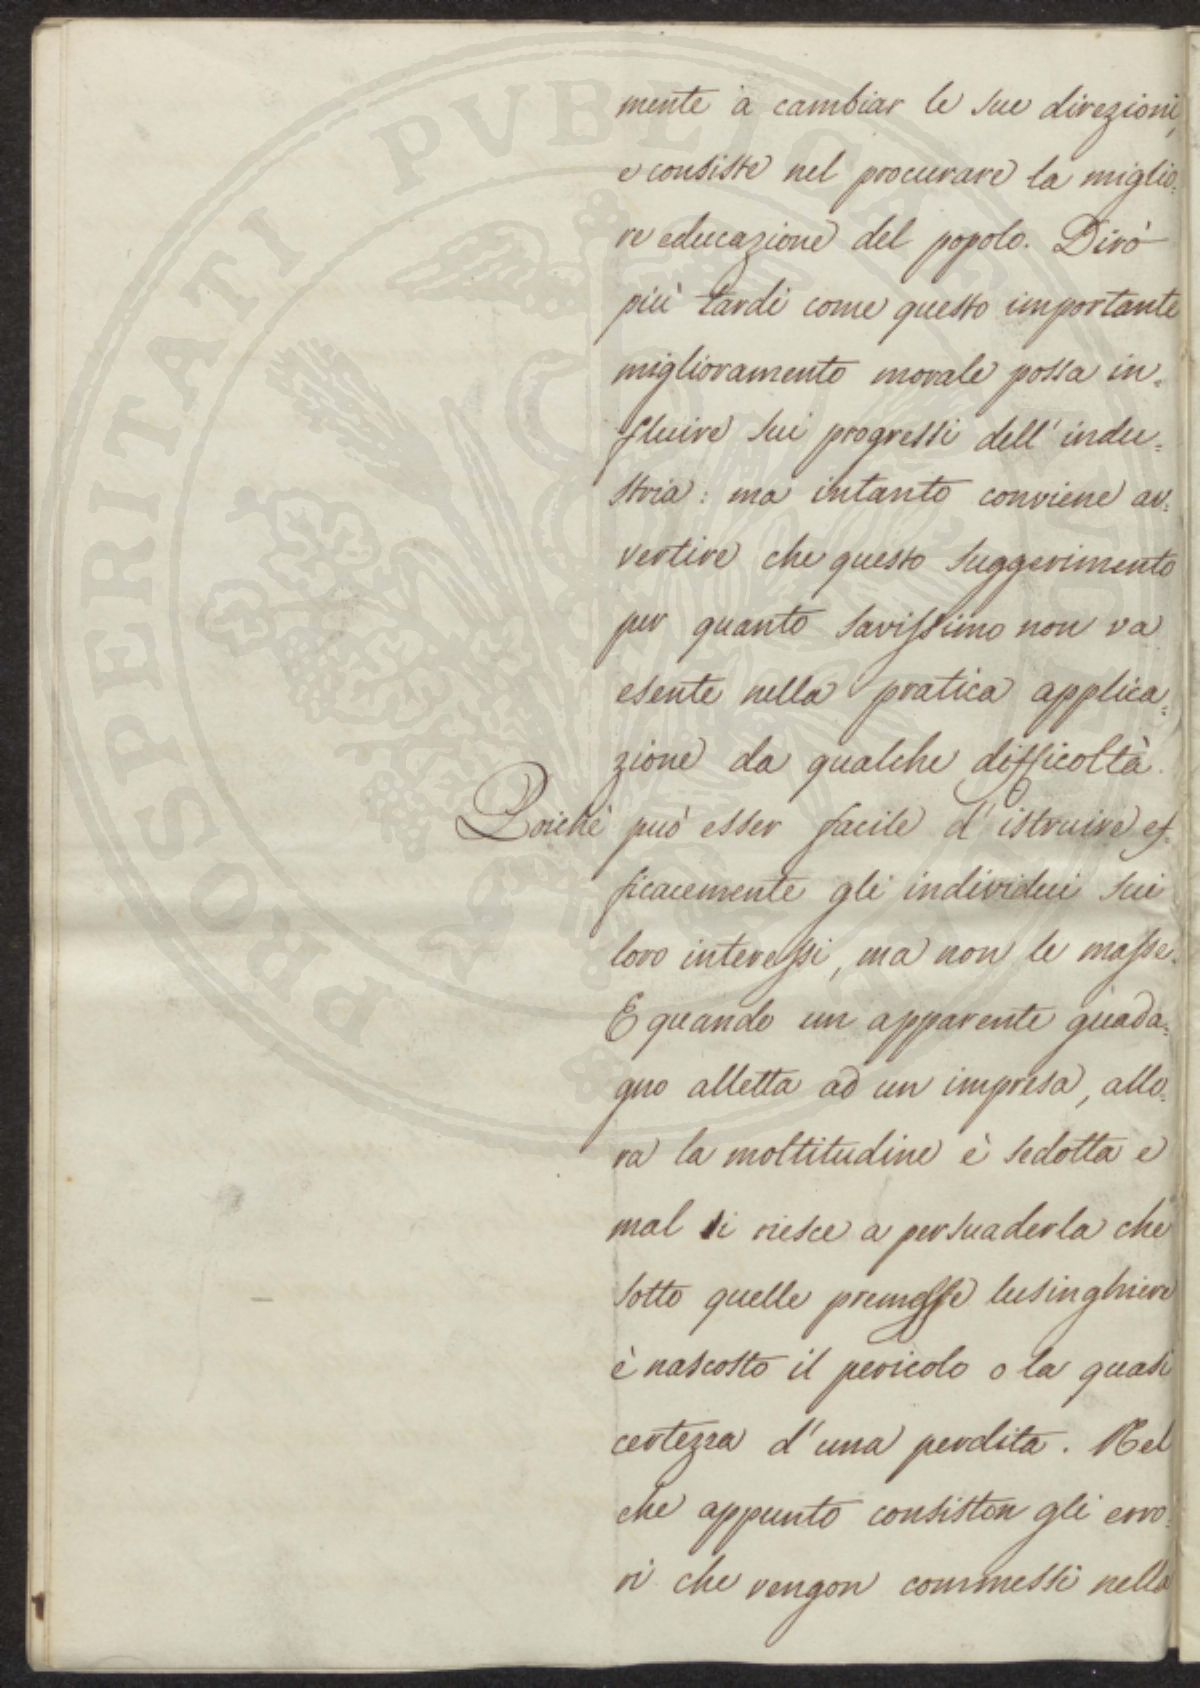 mente a cambiar le sue direzioni,
e consiste nel procurare la miglio=
re educazione del popolo. Dirò
più tardi come questo importante
miglioramento morale possa in=
fluire sui progressi dell'indu=
stria: ma intanto conviene av=
vertire che questo suggerimento
per quanto savissimo non va
esente nella pratica applica=
zione da qualche difficoltà.
Poichè può esser facile d'istruire ef=
ficacemente gli individui sui
loro interessi, ma non le masse.
E quando un apparente guada=
gno alletta ad un impresa, allo=
ra la moltitudine è sedotta e
mal si riesce a persuaderla che
sotto quelle premesse lusinghiere
è nascosto il pericolo o la quasi
certezza d'una perdita. Nel
che appunto consiston gli erro=
ri che vengon commessi nella
PROSPERITATI PVBLICAE